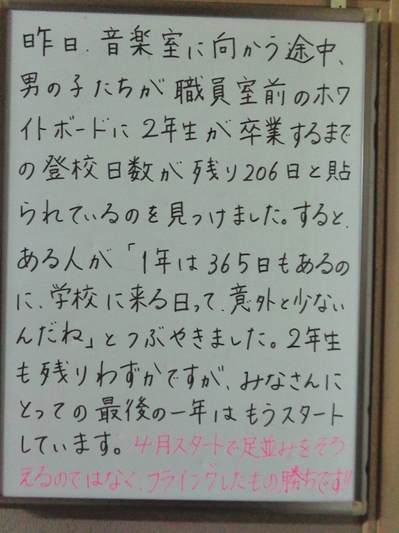 昨日、音楽室に向かう途中、
男の子たちが職員室前のホワ
イトボードに2年生が卒業するまで
の登校日数が残り206日と貼
られているのを見つけました。すると、
ある人が「1年は365日もあるの
に、学校に来る日って、意外と少ない
んだね」とつぶやきました。2年生
も残りわずかですが、みなさんに
とっての最後の一年はもうスタート
しています。4月スタートで足並みをそろ
えるのではなく、フライングしたもの勝ちです!!